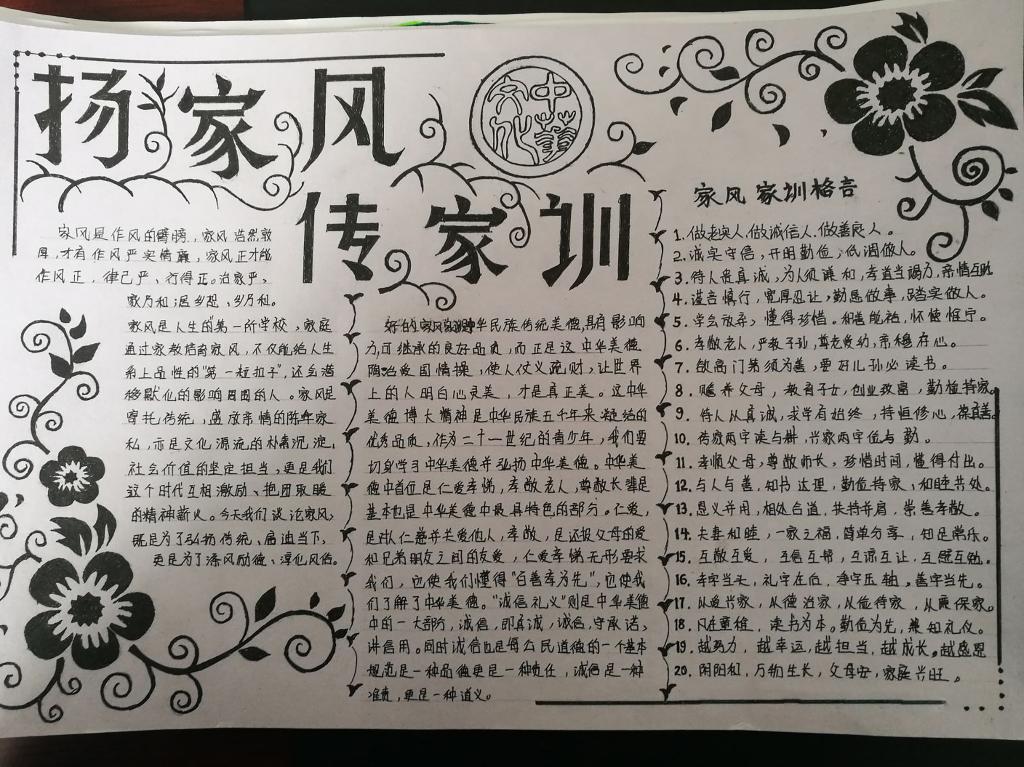 扬家风
传家训
中华文化
家风是作风的臂膀，家风浩然敦
厚，才有作风严实情襄，家风正才能
作风正，律己严、行得正。治家严，
家乃和 乡乃和。
家风是人生的"第一所学校，家庭
通过家教培育家风，不仅能给人生
系上品性的"第一粒扣子"，还会潜
移默化的影响周围的人。家风是
寄托传统，盛放亲情的陈年家
私，亦是文化源流的朴素沉淀，
社会价值的坚定担当，更是我们
这个时代互相激励、抱团取暖
的精神薪火。今天我们谈论家风，
既是为了弘扬传统、届迪当下，
更是为了涤风励德、淳化风俗。
好的家风 华民族传统美德，具有影响
力，可继承的良好品质，而正是这中华美德
陶冶爱国情操，使人仗义疏财，让世界
上的人明白心灵美，才是真正美。这中华
美德博大精神是中华民族五千年来凝结的
优秀品质，作为二十一世纪的青少年，我们要
切身学习中华美德并弘扬中华美德。中华美
德中首位是仁爱孝悌，孝敬老人，尊敬长辈是
基本也是中华美德中最具特色的部分。仁爱，
是以仁慈并关爱他人，孝敬，是还报父母的爱
和兄弟朋友之间的友爱，仁爱孝悌无形要求
我们，它使我们懂得"百善孝为先"，它使我
们了解了中华美德。"诚信礼义"则是中华美德
中的一大部分，诚信，即真诚，诚信，守承诺，
讲信用。同时诚信也是每公民道德的一个基本
规范是一种品德更是一种责任，诚信是一种
准责，更是一种道义。
家风家训格言
1.做老实人.做诚信人.做善良人。
2.诚实守信，开明勤俭，低调做人。
3.待人贵真诚，为人须谦和，孝道当竭力，亲情互助
4.谨言慎行，宽厚忍让，勤恳做事，踏实做人。
5.学会放弃，懂得珍惜。和善能裕，怀德恒宁。
6.孝敬老人，严教子孙，尊老爱幼，亲穆存心。
7.欲高门第须为善，要好儿孙必读书。
8.赡养父母，教育子女，创业致富，勤俭持家
9.待人从真诚，求学有始终，持恒修心，
10.传家两字读与耕，兴家两字俭与勤。
11.孝顺父母，尊敬师长，珍惜时间，懂得付出。
12.与人与善，知书达理，勤俭持家，和睦共处。
13.恩义并用，相处合道，扶持并肩，崇善孝敬。
14.夫妻和睦，一家之福，简单分享，知足常乐。
15.互敬互爱，互信互帮，互谅互让，互慰互勉
16.孝字当头，礼字左右，净字压轴。善字当先。
17.从爱兴家，从德治家，从俭持家，从廉保家。
18.凡庄重俭，读书为本。勤俭为先，兼知礼仪。
19.越努力，越幸运，越担当，越成长。越感恩
20.阴阳和，万物生长，父母安，家庭兴旺。